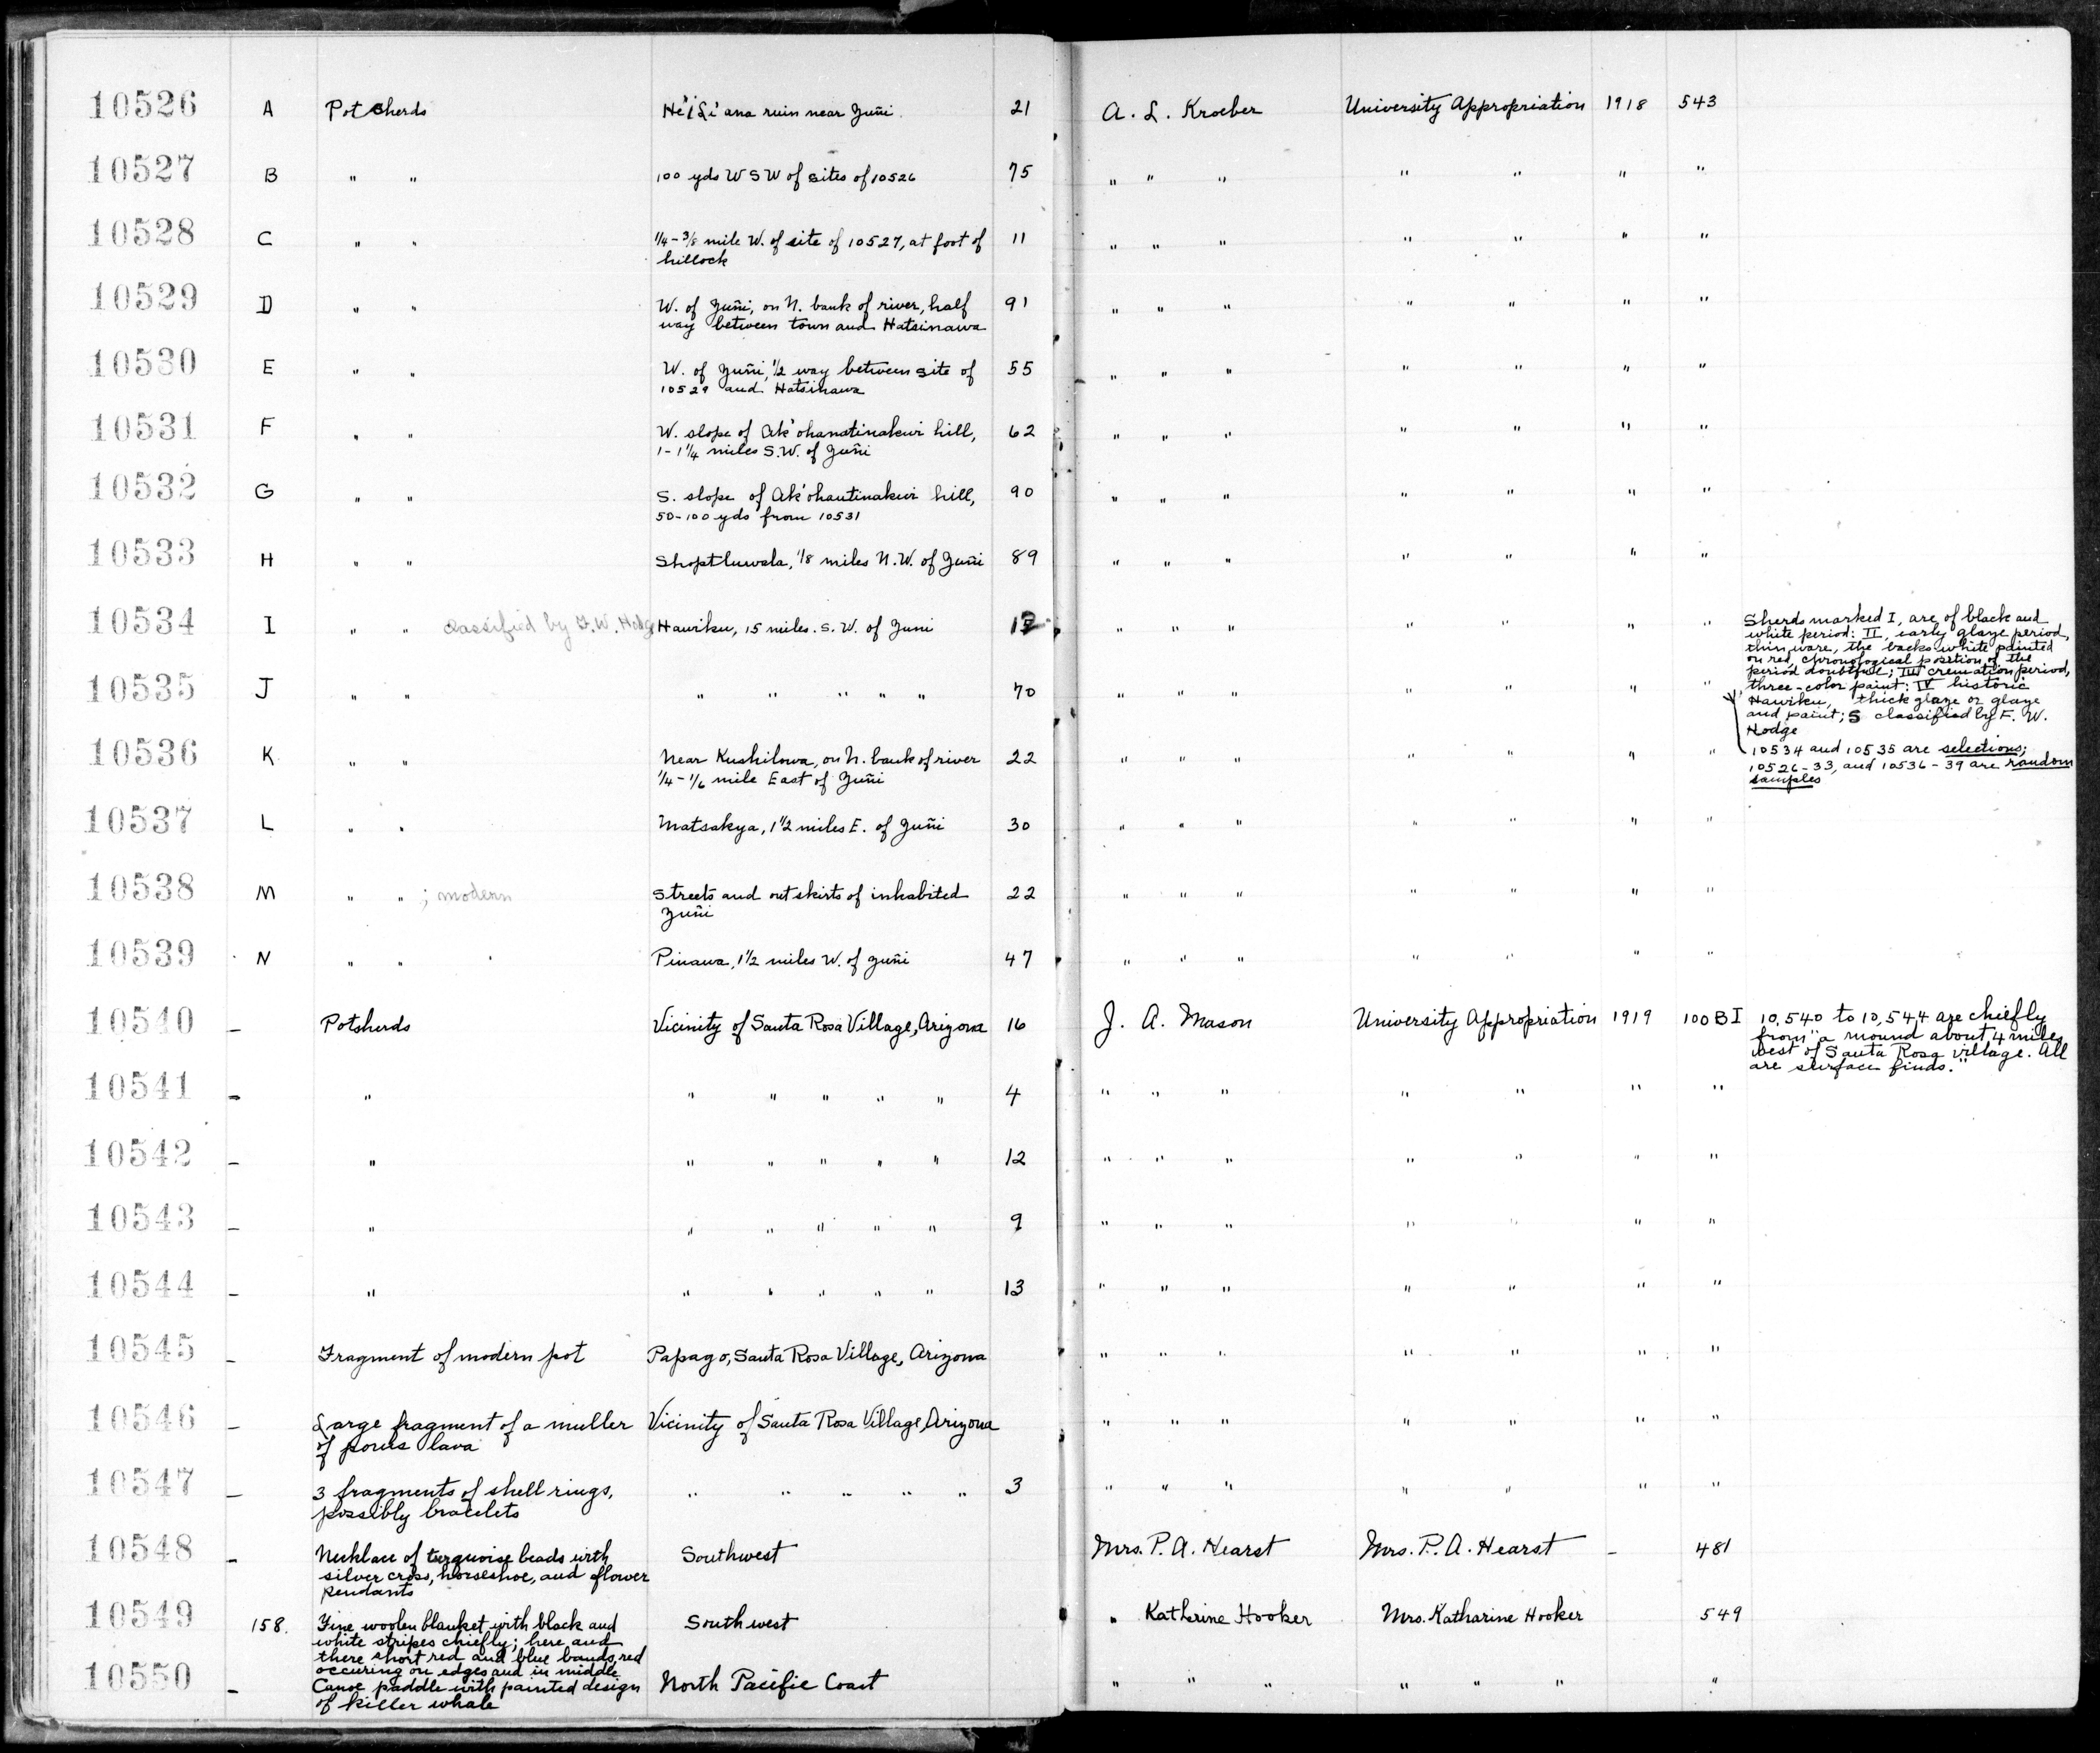 10526 A Potsherds He'iLi'ana ruin near Zuñi. 21 A. L. Kroeber University Appropriation 1918 543
10527 B " " 100 yds W S W of sites of 10526 75 " " " " " " "
10528 C " " 1/4 - 3/8 mile W. of site of 10527, at foot of 11 " " " " " " "
hillock
10529 D " " W. of Zuñi, on N. bank of river, half 91 " " " " " " "
way between town and Hatsinawa
10530 E " " W. of Zuñi, 1/2 way between site of 55 " " " " " " "
10529 and Hatsinawa
10531 F " " W. slope of Ak'ohanatinakwi hill, 62 " " " " " " "
1 - 1 1/4 miles S.W. of Zuñi
10532 G " " S. slope of Ak'ohautinakwi hill, 90 " " " " " " "
50-100 yds from 10531
10533 H " " Shoptluwala, 1/8 miles N.W. of Zuñi 89 " " " " " " "
10534 I " " classified by F. W. Hodge Hawiku, 15 miles. S. W. of Zuni " " " " " " "
Sherds marked I, are of black and
white period: II, early glaze period,
thin ware, the backs white painted
on red, chronological position of the
period doubtful; III cremation period,
three-color paint: IV historic
Hawiku, thick glaze or glaze
and paint; S classified by F. W.
Hodge
10535 J " " " " " " " 70 " " " " " " "
10534 and 10535 are selections;
10526-33, and 10536-39 are random
samples
10536 K " " Near Kushilowa, on N. bank of river 22 " " " " " " "
1/4 - 1/6 mile East of Zuñi
10537 L " " Matsakya, 1 1/2 miles E. of Zuñi 30 " " " " " " "
10538 M " " ; modern Streets and outskirts of inhabited 22 " " " " " " "
Zuñi
10539 N " " Pinawa, 1 1/2 miles W. of Zuñi 47 " " " " " " "
10540 – Potsherds Vicinity of Santa Rosa Village, Arizona 16 J. A. Mason University Appropriation 1919 100BI 10,540 to 10,544 are chiefly
from "a mound about 4 miles
west of Santa Rosa village. All
are surface finds."
10541 – " " " " " " 4 " " " " " " "
10542 – " " " " " " 12 " " " " " " "
10543 – " " " " " " 9 " " " " " " "
10544 – " " " " " " 13 " " " " " " "
10545 – Fragment of modern pot Papago, Santa Rosa Village, Arizona " " " " " " "
10546 – Large fragment of a muller Vicinity of Santa Rosa Village, Arizona " " " " " " "
of porus lava
10547 – 3 fragments of shell rings, " " " " " 3 " " " " " " "
possibly bracelets
10548 – Necklace of turquoise beads with Southwest Mrs. P. A. Hearst Mrs. P. A. Hearst – 481
silver cross, horseshoe, and flower
pendants
10549 158. Fine woolen blanket with black and Southwest " Katherine Hooker Mrs. Katharine Hooker 549
white stripes chiefly; here and
there short red and blue bands, red
occuring on edges and in middle
10550 – Canoe paddle with painted design North Pacific Coast " " " " " " "
of killer whale